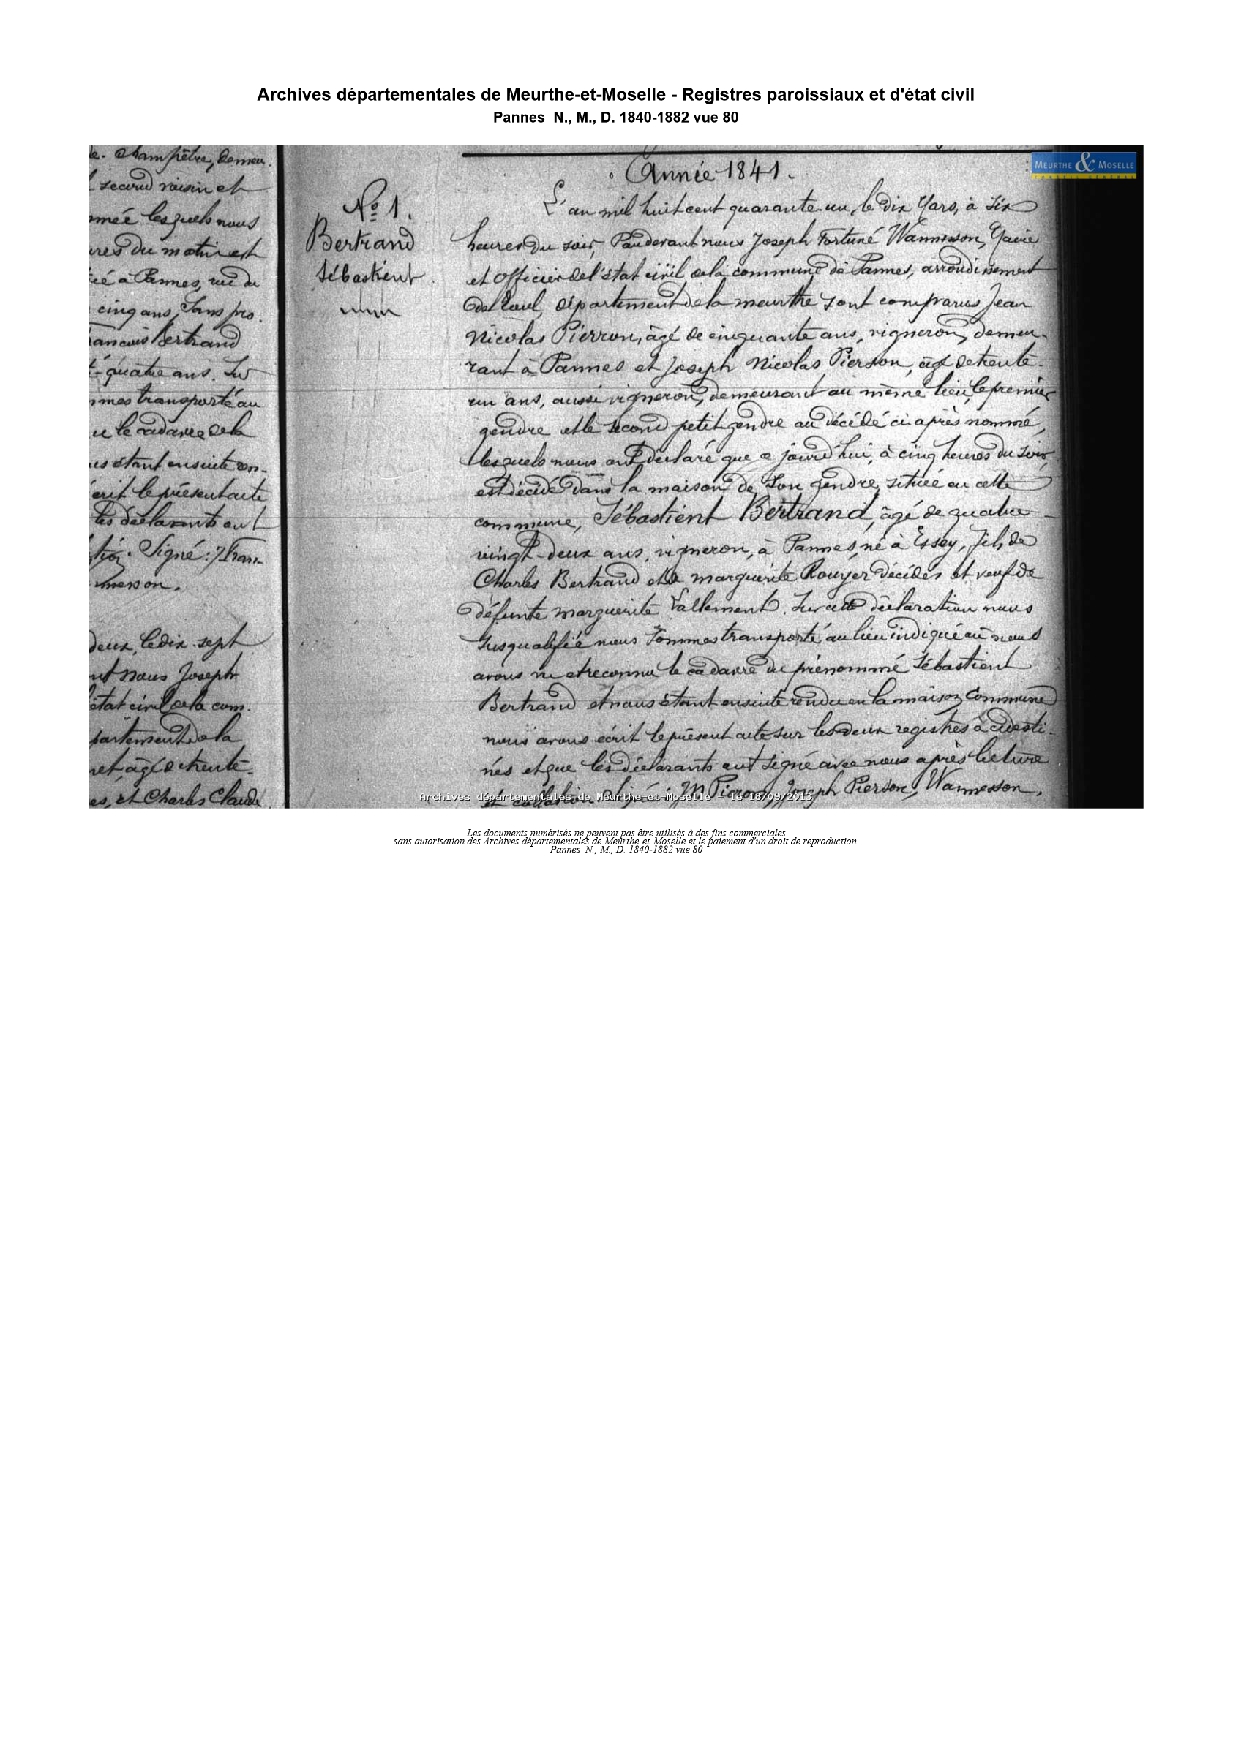 Archives départementales de Meurthe-et-Moselle - Registres paroissiaux et d'état civil
Pannes N., M., D. 1840-1882 vue 80
MEURTHE & MOSELLE
champêtre, demeu.
second voisin et
mée lesquels nous
ures du matin est
à Pannes, rue de
cinq ans, sans pro.
Bertrand
quatre ans. Sur
mes transporté au
le cadavre de la
us étant ensuite en.
écrit le présent acte
les déclarants ont
Signé:
meson.
deux, le dix sept
nt nous Joseph
état civil de la com.
partement de la
âgé de trente.
es, et Charles Claude
N° 1.
Bertrand
Sébastient
Année 1841.
L'an mil huit cent quarante un, le dix Mars, à six
heures du soir, Pardevant nous Joseph Fortuné Wannesson, Maire
et Officier de l'état civil de la commune de Pannes, arrondissement
de Toul, département de la meurthe sont comparus Jean
Nicolas Pierron, âgé de cinquante ans, vigneron, demeu-
rant à Pannes et Joseph Nicolas Pierson, âgé de trente
un ans, aussi vigneron, demeurant au même lieu, le premier
gendre et le second petit gendre au décédé ci après nommé,
lesquels nous ont déclaré que ce jourd'hui, à cinq heures du soir
est décédé dans la maison de son gendre, située en cette
commune, Sébastient Bertrand, âgé de quatre
vingt-deux ans, vigneron, à Pannes, né à Essey, fils de
Charles Bertrand et de marguerite Rouyer décédés et veuf de
défunte marguerite Vallement. Sur cette déclaration nous
susqualifié nous sommes transporté au lieu indiqué où nous
avons vu et reconnu le cadavre du prénommé Sébastient
Bertrand et nous étant ensuite rendu en la maison Commune
nous avons écrit le présent acte sur les deux registres à ce desti-
nés et que les déclarants ont signé avec nous après lecture
Pierron, Joseph Pierson, Wannesson.
Archives départementales de Meurthe-et-Moselle
Les documents numérisés ne peuvent pas être utilisés à des fins commerciales
sans autorisation des Archives départementales de Meurthe et Moselle et le paiement d'un droit de reproduction
Pannes N., M., D. 1840-1882 vue 80